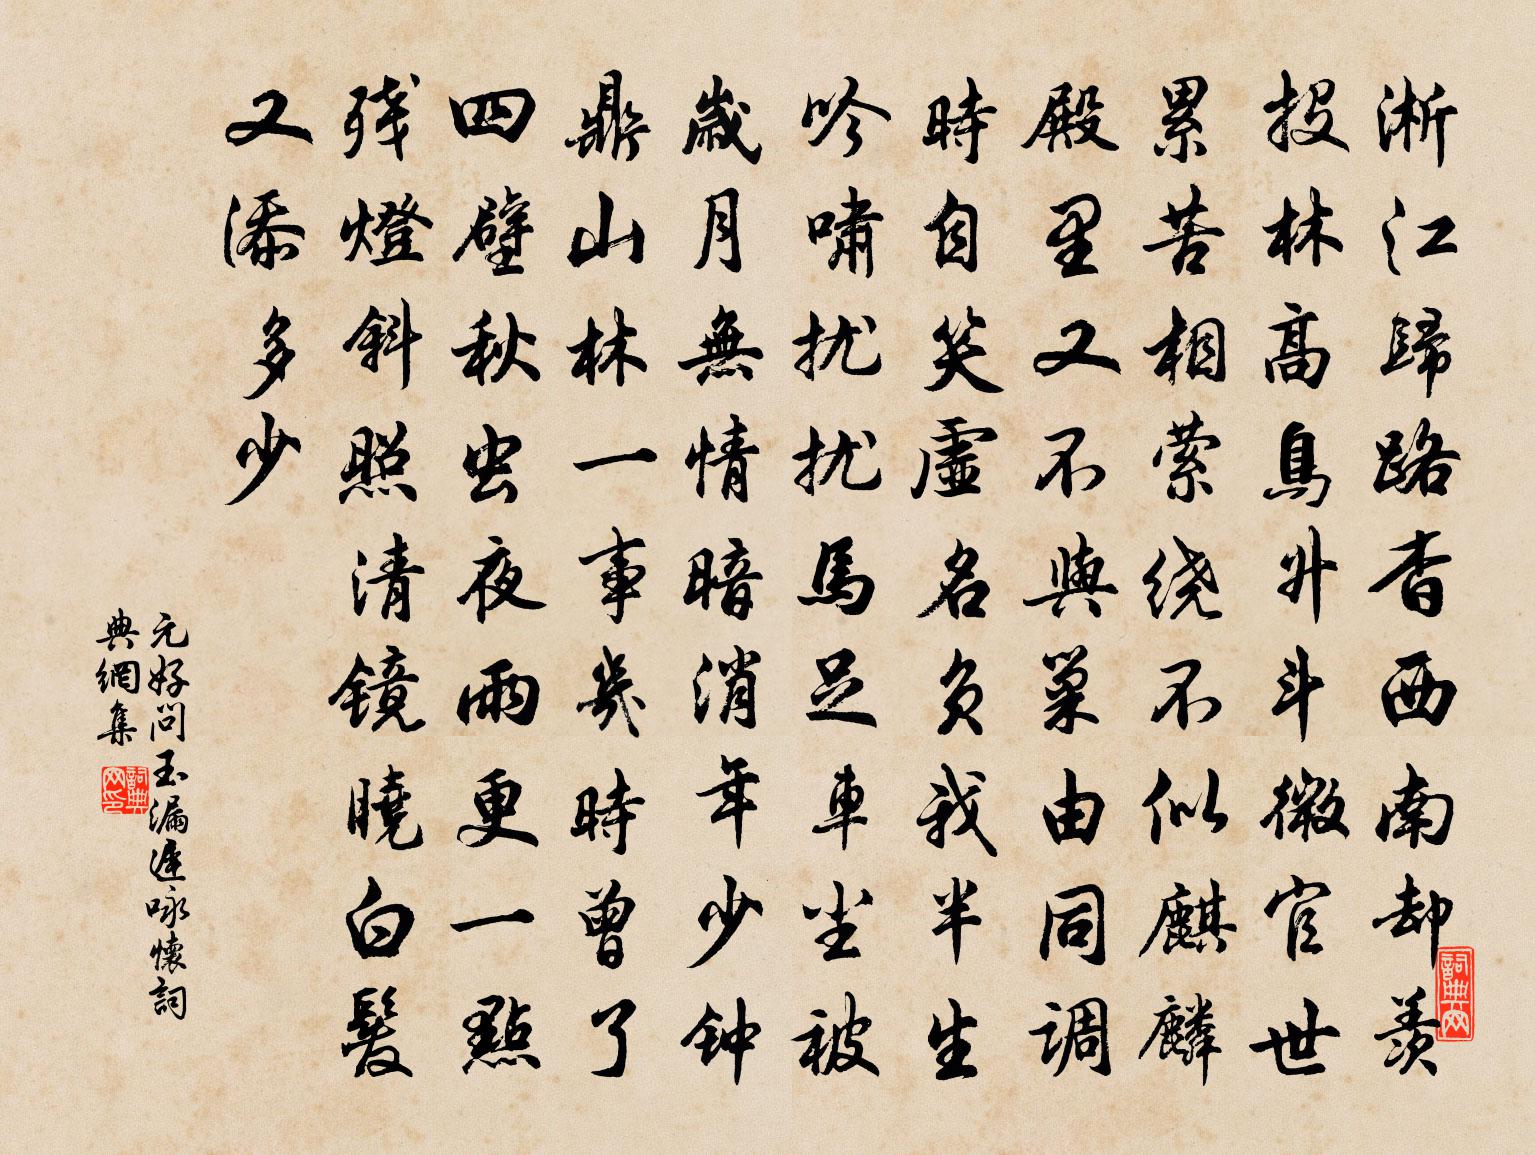 淅江歸路杳西南却羨
投林高鳥升斗微官世
累苦相萦绕不似麒麟
殿里又不與巢由同调
時自笑虛名負我半生
吟啸扰扰馬足車尘被
歲月無情暗消年少钟
鼎山林一事幾時曾了
四壁秋虫夜雨更一點
残燈斜照清镜曉白髮
又添多少
元好问玉漏遲咏懷詞
典網集
詞典网
詞典网印